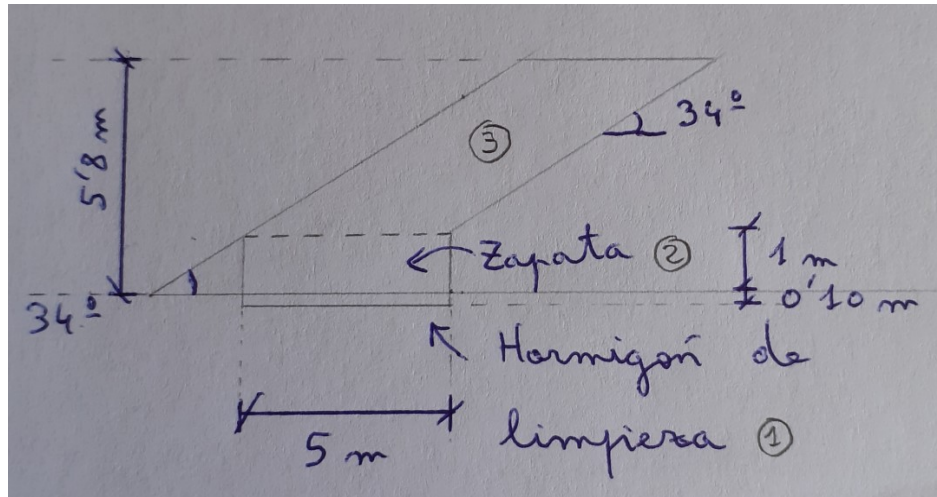 5'8 m
34º
③
Zapata ②
1 m
0'10 m
34º
Hormigón de
limpieza ①
5 m